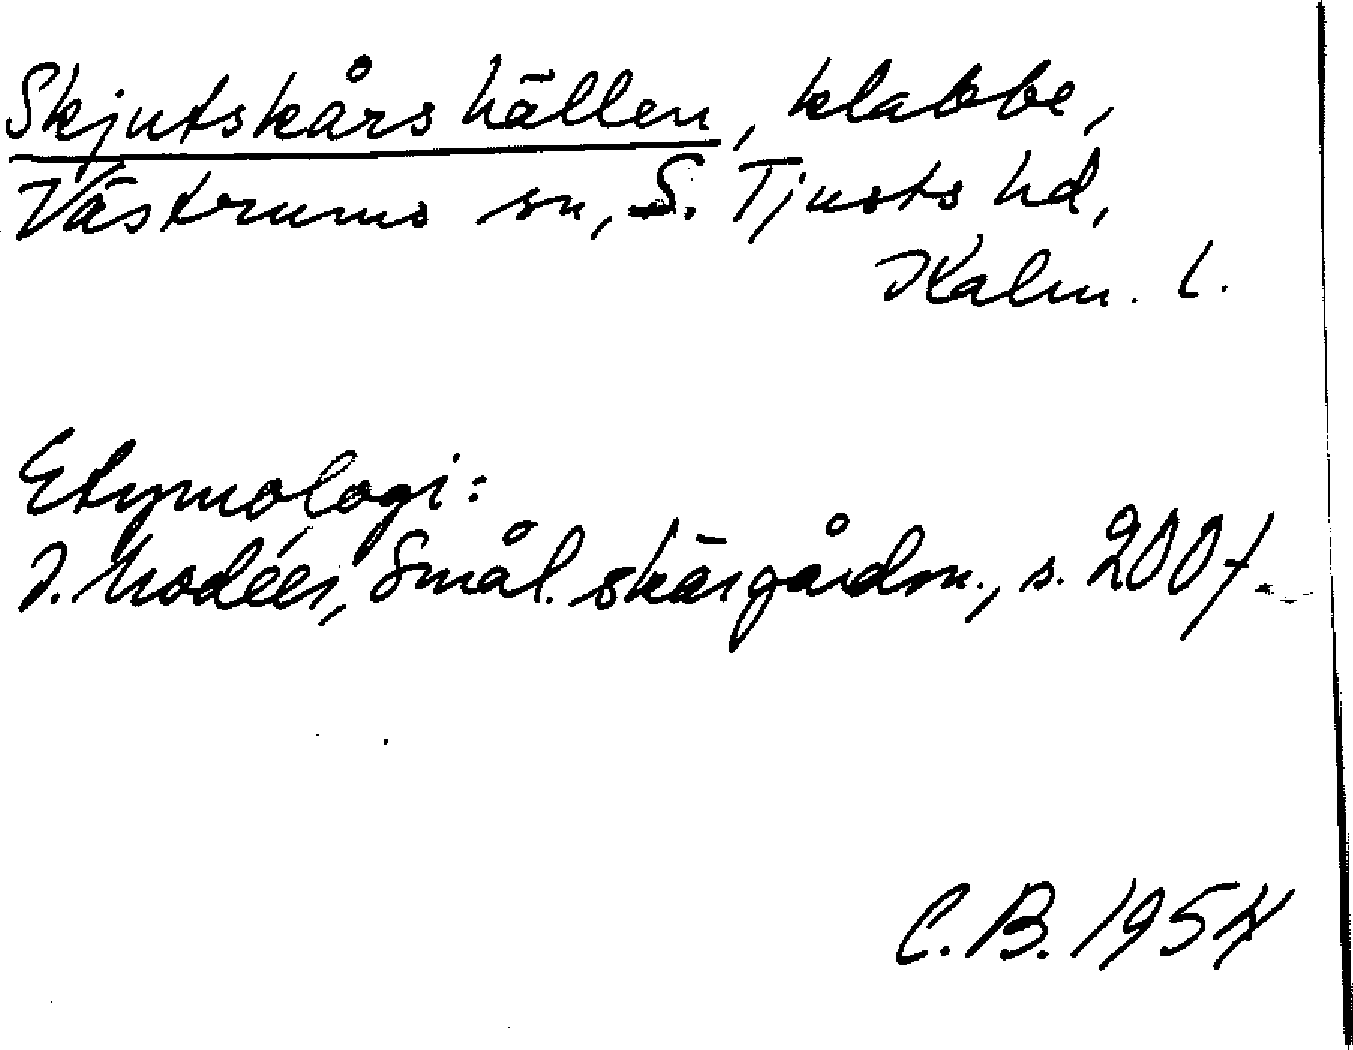 Skjutskårshällen, klabbe,
Västrums sn, S. Tjusts hd,
Kalm. l.
Etymologi:
I. Modéer, Smål. skärgårdsn., s. 200 f.
C. B. 1954